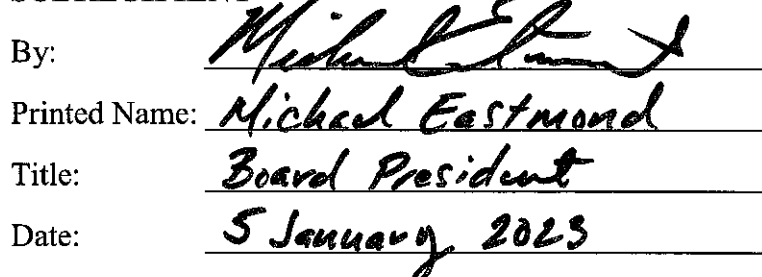 By: Michael Eastmond
Printed Name: Michael Eastmond
Title: Board President
Date: 5 January 2023